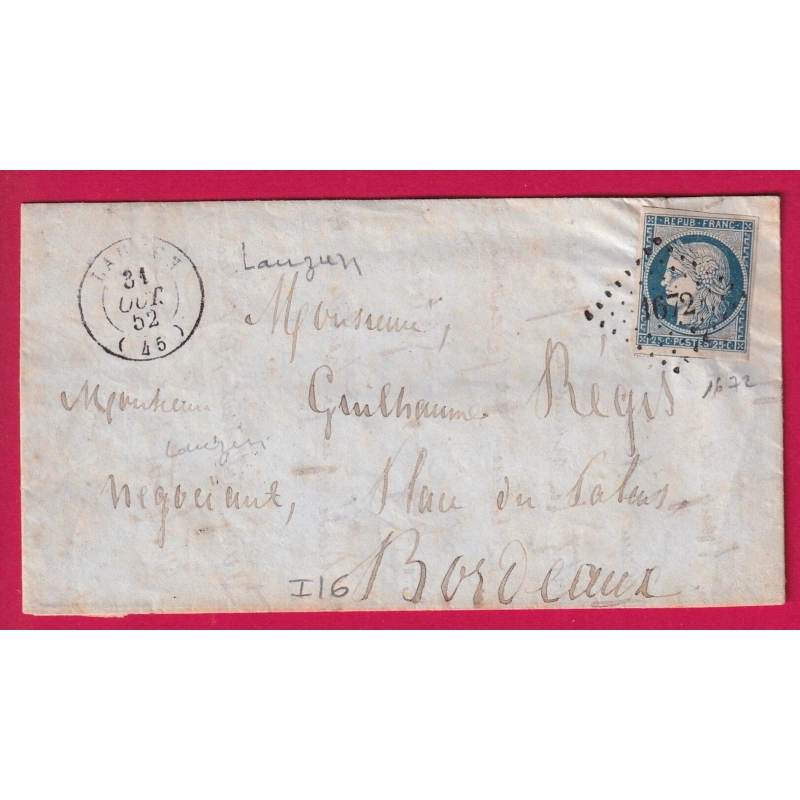 31
OCT.
52
(45)
Lauzun
REPUB · FRANC ·
1672
25 · C · POSTES · 25 · C
1672
Monsieur,
Monsieur Guilhaume Régis
Lauzun
Négociant, Place du Palais
I16 Bordeaux